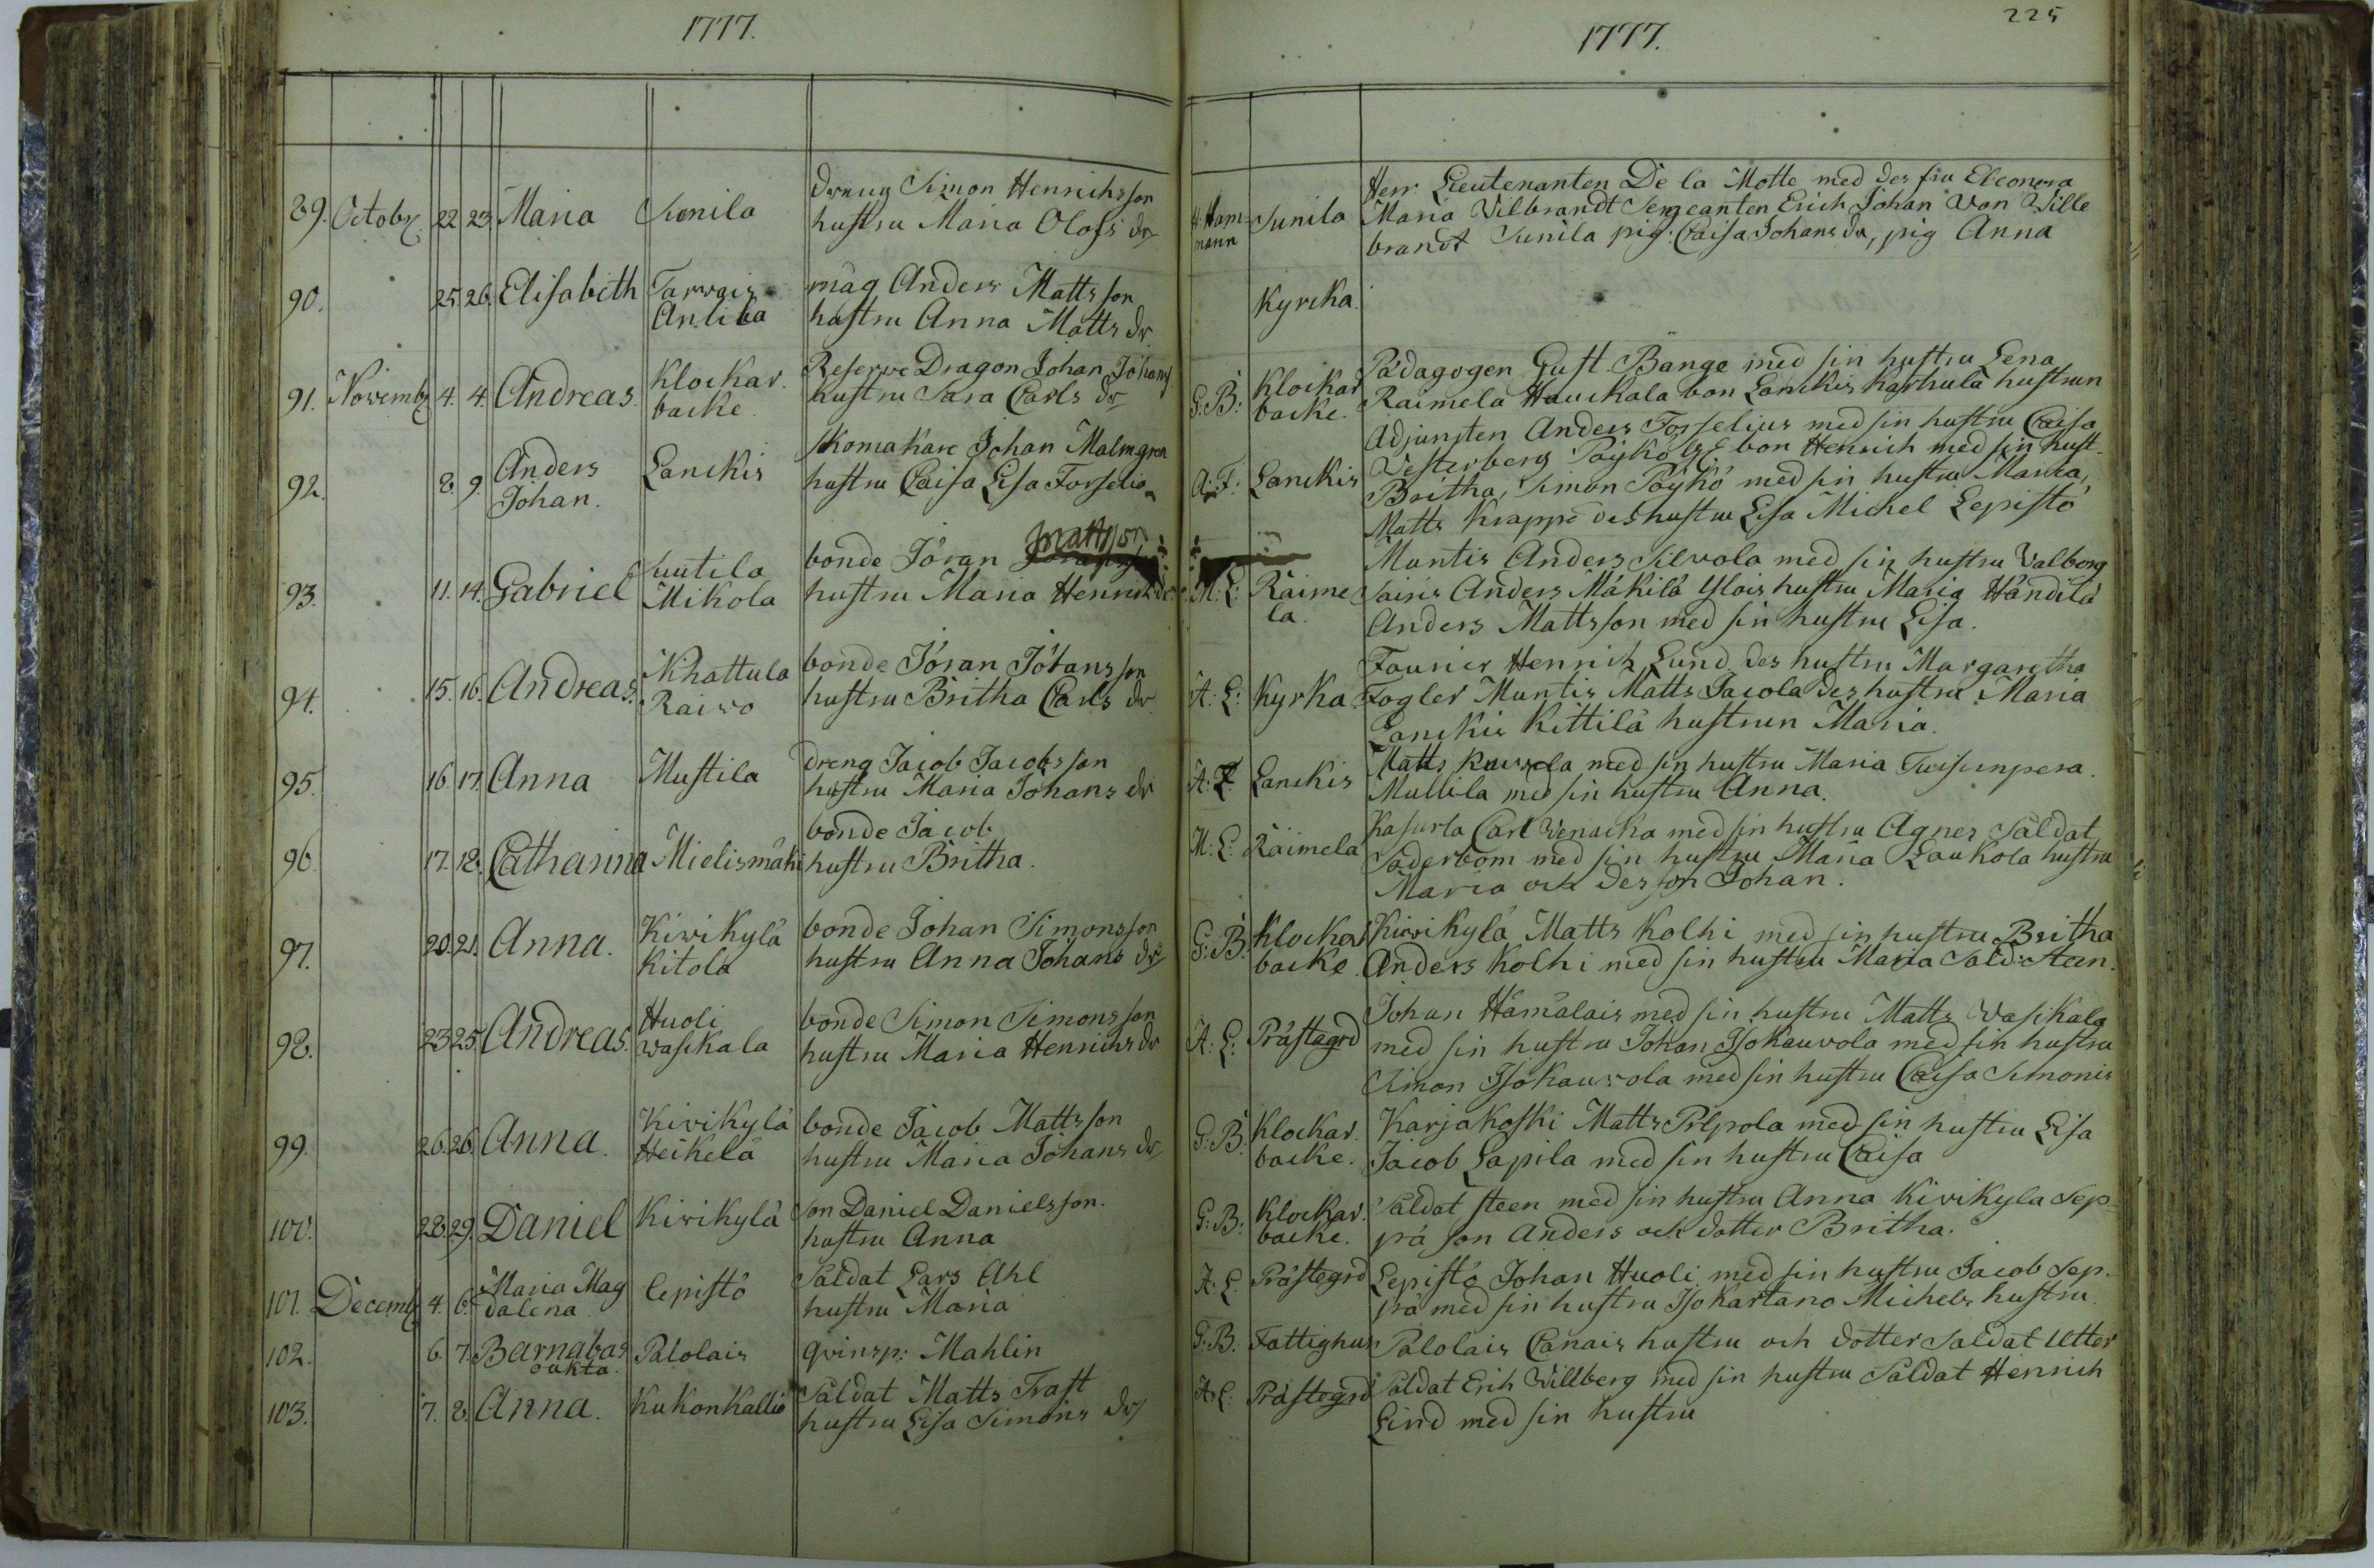 1777.
89. Octobr 22 23. Maria Sunila
dreng Simon Henrichsson
hustru Maria Olofs dr
90. 25. 26. Elisabeth Tarwais
Anlila
mág Anders Matts son
hustru Anna Matts dr.
91. Novembr 4. 4. Andreas. Klockar
backe.
Reserve Dragon Johan Johans
hustru Sara Carls dr
92. 8. 9. Anders
Johan. Lanckis
skomakare Johan Malmgren
hustru Caisa Lisa Forselia
93. 11. 14. Gabriel
Mikola
bonde Jöran Mattsson
hustru Maria Henrichs dr
94. 15. 16. Andreas. Khattula
Raivo
bonde Jöran Johansson
hustru Britha Carls dr
95. 16. 17. Anna Mustila
dreng Jacob Jacobs son
hustru Maria Johans dr
96. 17. 18. Catharina Mielismäki
bonde Jacob
hustru Britha.
97. 20. 21. Anna. Kivikylä
Kitola
bonde Johan Simonsson
hustru Anna Johans dr
98. 23 25 Andreas. Huoli
wasikala
bonde Simon Simons son
hustru Maria Henrichs dr
99. 26. 26. Anna. Kivikylä
Heikelä
bonde Jacob Matts son
hustru Maria Johans dr
100. 28. 29. Daniel Kivikylä
son Daniel Danielsson.
hustru Anna
101. Decembr 4. 6. Maria Mag
dalena. Lepistö
Saldat Lars Ahl
hustru Maria
102. 6. 7. Barnabas
oäkta. Palolais
qvinsp: Mahlin
103. 7. 8. Anna. Kukonkallio
Saldat Matts Trast
hustru Lisa Simons dr
225
1777.
H: Ham
mann Sunila
Herr Lieutenanten De la Motte med des fru Eleonora
Maria Vilbrandt Sergeanten Erich Johan von Wille
brandt Sunila pig: Caisa Johans dr, pig Anna
Kyrcka.
G: B: Klockar
backe.
Pädagogen Gust. Bange med sin hustru Lena
Raimela Hauckala bon Lanckis Karhula hustrun
A: F: Lanckis
Adjuncten Anders Forselius med sin hustru Caisa
Vesterberg Päykö bon Henrich med sin hust.
Britha, Simon Päykö med sin hustru Maria,
Matts Krappe des hustru Lisa Michel Lepistö
M: L: Räime
la.
Muntis Anders Silvola med sin hustru Valborg
Sairis Anders Mäkilä Ylois hustru Maria Händilä
Anders Mattsson med sin hustru Lisa.
A: L: Kyrka
Fourier Henrich Lund des hustru Margaretha
Fogler Muntis Matts Jacola des hustru Maria
Lanckis Kittilä hustrun Maria.
A: L Lanckis
Matts med sin hustru Maria
Mullila med sin hustru Anna.
M: L: Räimela
Kasurla Carl Venacka med sin hustru Agnes Saldat
Söderbom med sin hustru Maria Laukola hustru
Maria och des son Johan.
G: B: Klockar
backe.
Kivikylä Matts Kolhi med sin hustru Britha
Anders Kolhi med sin hustru Maria Sald: Steen.
A: L: Prästegrd
Johan Hämäläis med sin hustru Matts Wasikala
med sin hustru Johan Isokauvola med sin hustru
Simon Isokauvola med sin hustru Caisa Simonis
G: B: Klockar.
backe.
Karjakoski Matts Pilpola med sin hustru Lisa
Jacob Lapila med sin hustru Caisa
G: B: Klockar.
backe.
Saldat Steen med sin hustru Anna Kivikylä Sep
prä son Anders och dotter Britha.
A: L. Prästegrd
Lepistö Johan Huoli med sin hustru Jacob Sep.
prä med sin hustru Iso Kartano Michels hustru
G: B. Fattighus
Palolais Canais hustru och dotter Saldat Utter
A: L: Prästegrd
Saldat Erik Willberg med sin hustru Saldat Henrich
Lind med sin hustru